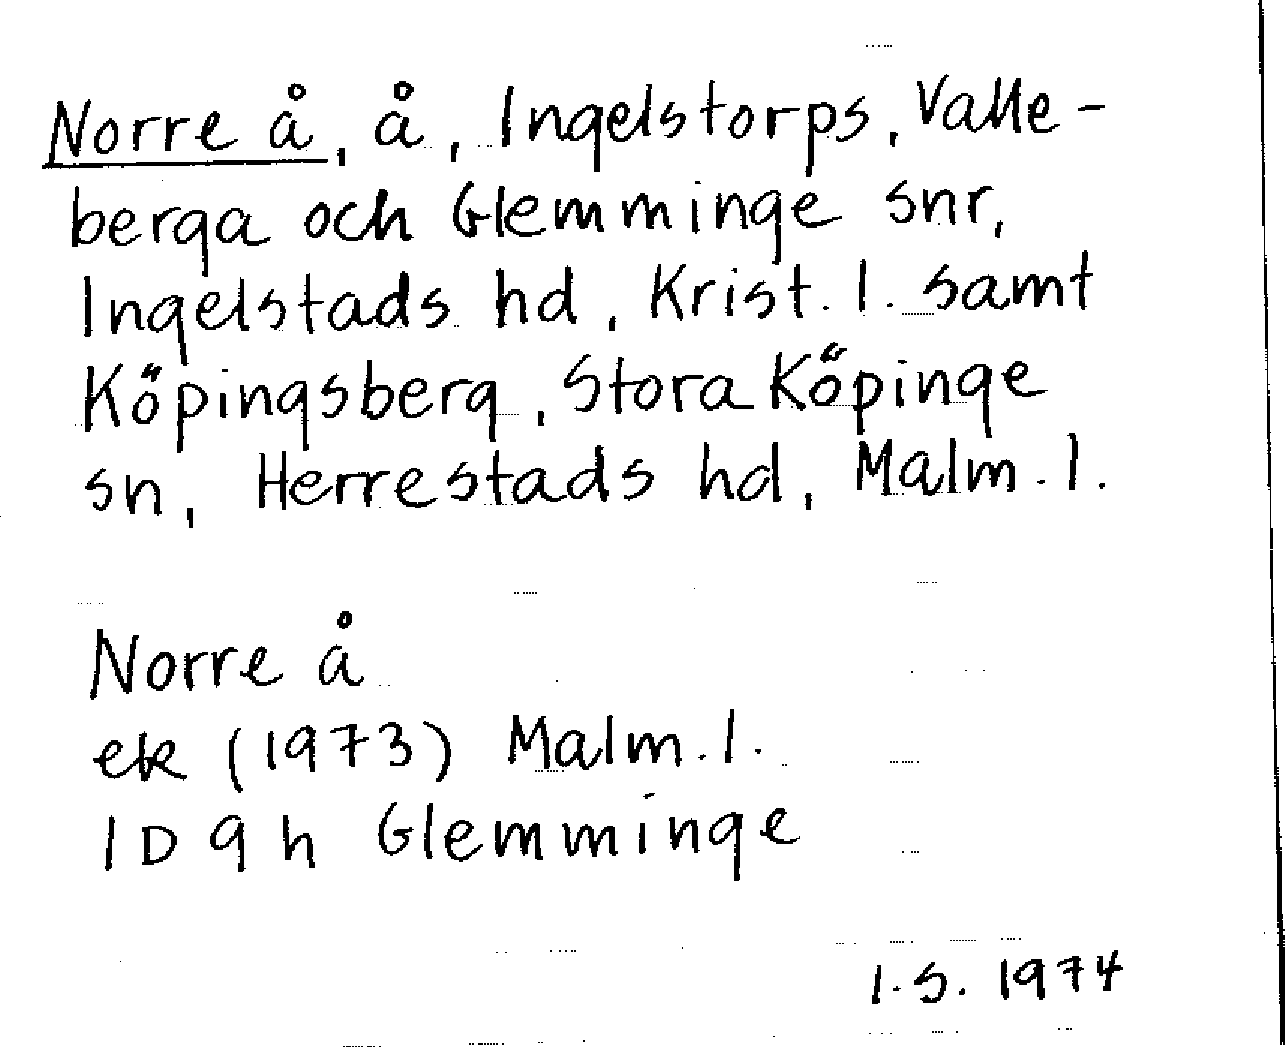 Norre å, å, Ingelstorps, Valle-
berga och Glemminge snr,
Ingelstads hd, Krist. l. samt
Köpingsberg, Stora Köpinge
sn, Herrestads hd, Malm. l.
Norre å
ek (1973) Malm. l.
1 D 9 h Glemminge
I. S. 1974